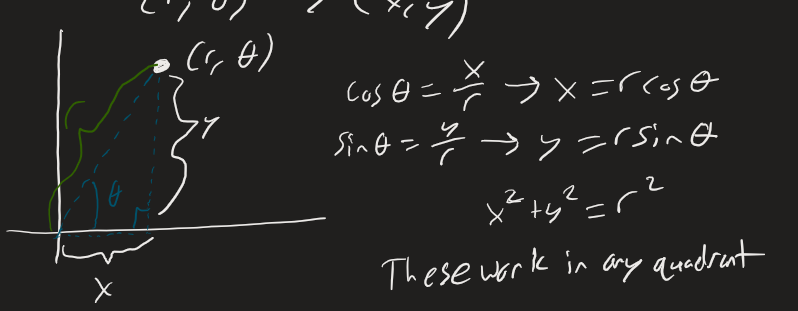 (r, θ) → (x, y)
(r, θ)
r
y
θ
x
cos θ = x/r → x = r cos θ
sin θ = y/r → y = r sin θ
x² + y² = r²
These work in any quadrant